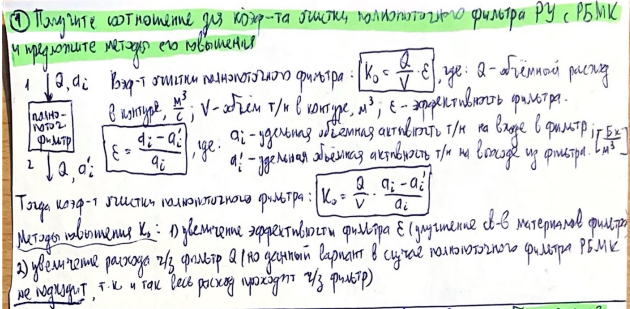 ① Получите соотношение для коэф-та очистки полнопоточного фильтра РУ с РБМК
и предложите методы его повышения
1 Q, aᵢ Коэф-т очистки полнопоточного фильтра: K₀ = Q/V · ε, где: Q - объёмный расход
в контуре, м³/с; V - объём т/н в контуре, м³; ε - эффективность фильтра.
полно-
поточ
фильтр
ε = (aᵢ - aᵢ')/aᵢ, где: aᵢ - удельная объёмная активность т/н на входе в фильтр; [Бк/м³]
2 Q, aᵢ' aᵢ' - удельная объёмная активность т/н на выходе из фильтра.
Тогда коэф-т очистки полнопоточного фильтра: K₀ = Q/V · (aᵢ - aᵢ')/aᵢ
Методы повышения K₀: 1) увеличение эффективности фильтра ε (улучшение св-в материалов фильтра
2) увеличение расхода ч/з фильтр Q (но данный вариант в случае полнопоточного фильтра РБМК
не подходит, т.к и так весь расход проходит ч/з фильтр)